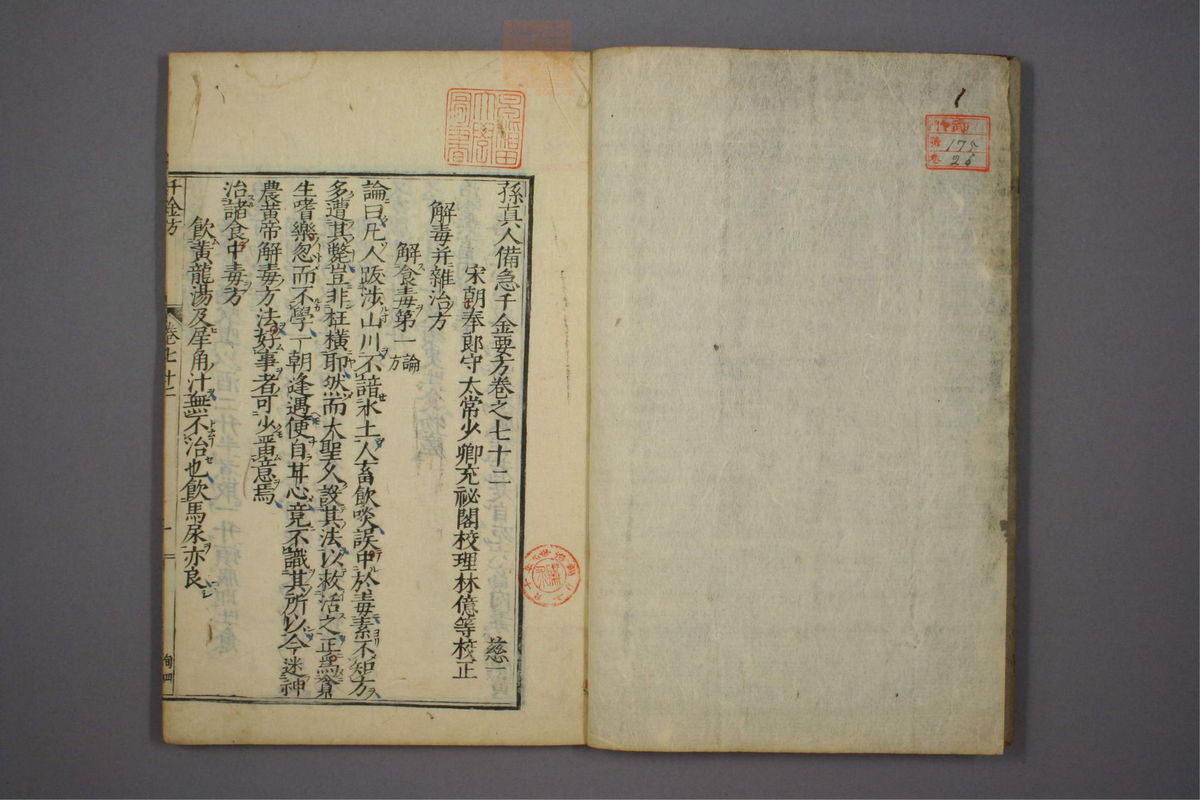 孫真人備急千金要方卷之七十二 慈一
宋朝奉郎守太常少卿充祕閣校理林億等校正
解毒并雜治方
解食毒第一 論 方
論曰凡人跋涉山川不諳水土人畜飲啖誤中於毒素不知方
多遭其斃豈非枉橫耶然而大聖久設其法以救活之正爲貪
生嗜樂忽而不學一朝逢遇便自甘心竟不識其所以今述神
農黃帝解毒方法好事者可少畱意焉
治諸食中毒方
飲黃龍湯及犀角汁無不治也飲馬尿亦良
千金方 卷七十二 一
175
26